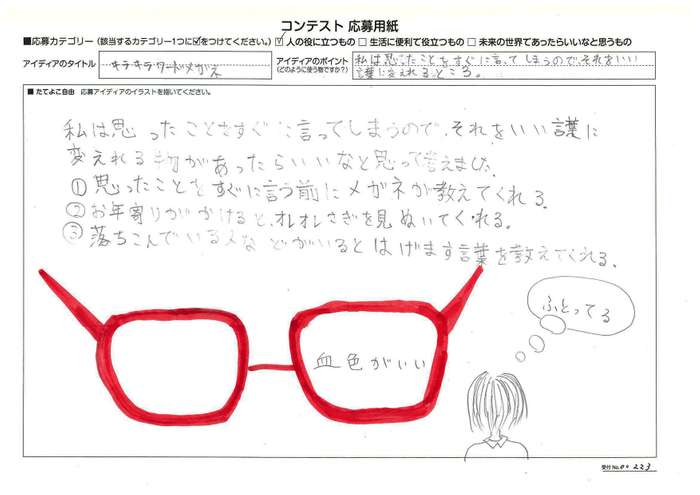 コンテスト 応募用紙
■応募カテゴリー（該当するカテゴリー1つに☑をつけてください。）☑ 人の役に立つもの □ 生活に便利で役立つもの □ 未来の世界であったらいいなと思うもの
アイディアのタイトル
キラキラワードメガネ
アイディアのポイント
（どのように使う物ですか？）
私は思ったことをすぐに言ってしまうので、それをいい
言葉に変えれるところ。
■たてよこ自由　応募アイディアのイラストを描いてください。
私は思ったことをすぐに言ってしまうので、それをいい言葉に
変えれる物があったらいいなと思って考えました。
①思ったことをすぐに言う前にメガネが教えてくれる。
②お年寄りがかけると、オレオレさぎを見ぬいてくれる。
③落ちこんでいる人などがいるとはげます言葉を教えてくれる。
ふとってる
血色がいい
受付No.00223